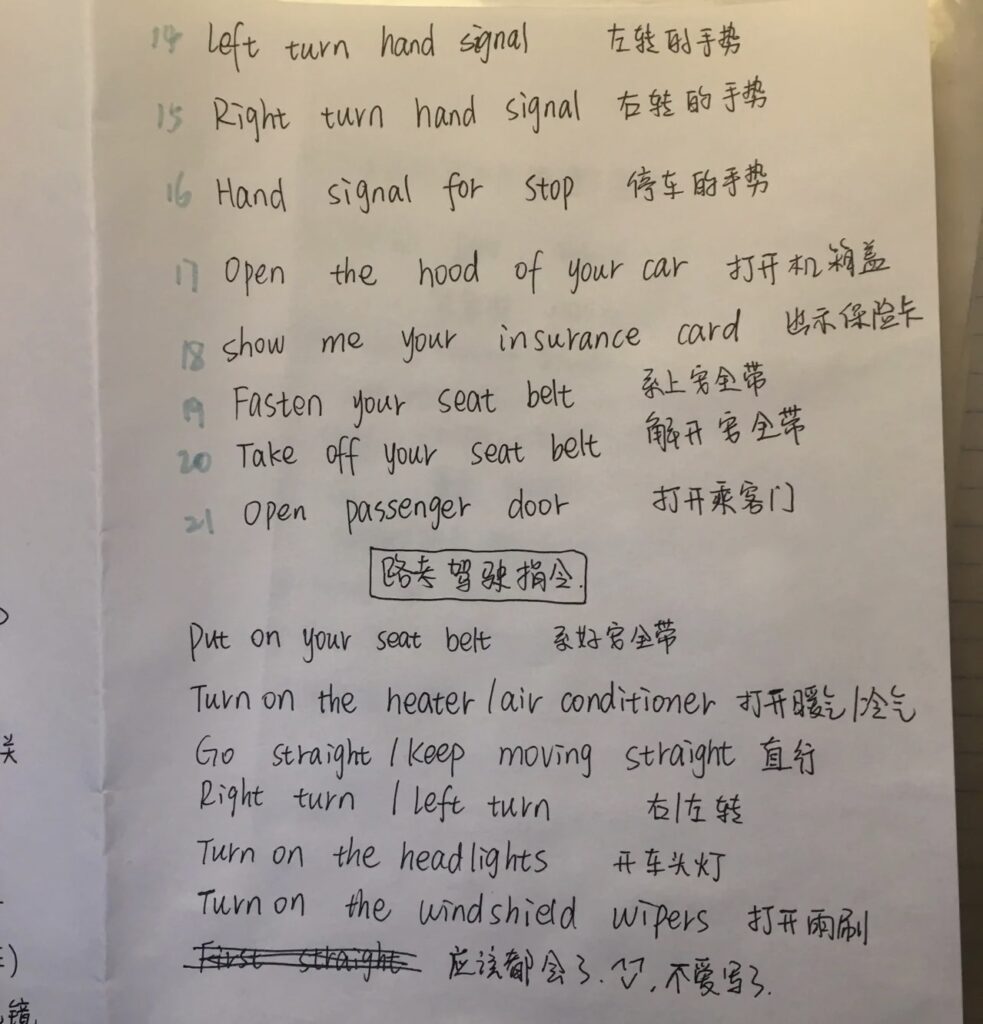 14 Left turn hand signal 左转的手势
15 Right turn hand signal 右转的手势
16 Hand signal for stop 停车的手势
17 Open the hood of your car 打开机箱盖
18 show me your insurance card 出示保险卡
19 Fasten your seat belt 系上安全带
20 Take off your seat belt 解开安全带
21 Open passenger door 打开乘客门
路考驾驶指令.
Put on your seat belt 系好安全带
Turn on the heater/air conditioner 打开暖气/冷气
Go straight/keep moving straight 直行
Right turn/left turn 右/左转
Turn on the headlights 开车头灯
Turn on the windshield wipers 打开雨刷
First straight 应该都会了. 不爱写了.
关
镜